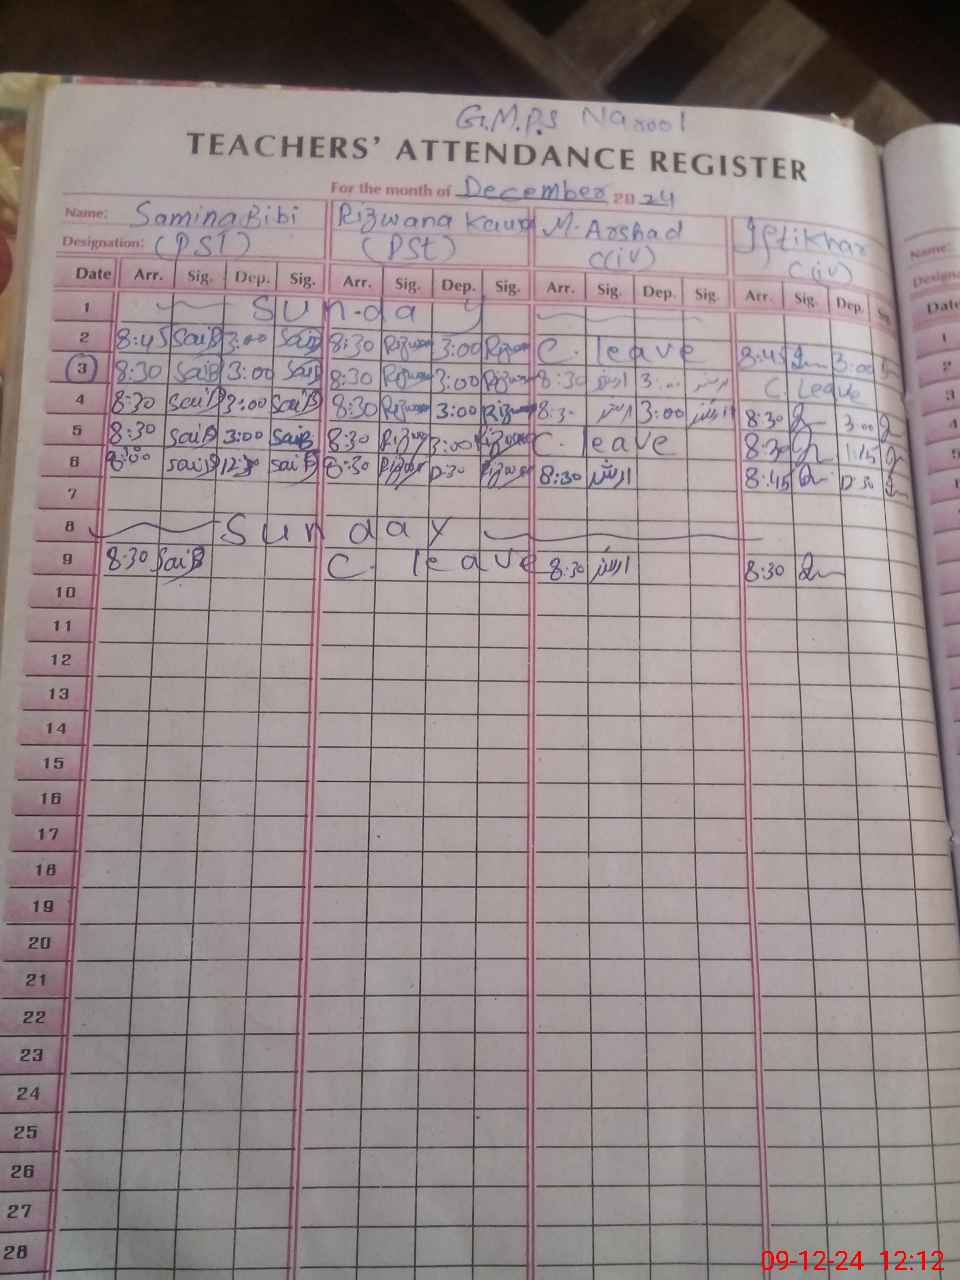 G.M.P.S Narool
TEACHERS' ATTENDANCE REGISTER
For the month of December 2024
Name: Samina Bibi Rizwana Kausar M. Arshad Iftikhar
Designation: (PST) (PSt) C(iv) C(iv) Name:
Designa
Date Arr. Sig. Dep. Sig. Arr. Sig. Dep. Sig. Arr. Sig. Dep. Sig. Arr. Sig. Dep. Sig Date
1 Sunday 1
2 8:45 SaiB 3:00 SaiB 8:30 Rizwan 3:00 Rizwan C. leave 8:45 3:00 2
3 8:30 SaiB 3:00 SaiB 8:30 Rizwan 3:00 Rizwan 8:30 ارشد 3:00 ارشد C. Leave 3
4 8:30 SaiB 3:00 SaiB 8:30 Rizwan 3:00 Rizwan 8:30 ارشد 3:00 ارشد 8:30 3:00 4
5 8:30 SaiB 3:00 SaiB 8:30 Rizwan 3:00 Rizwan C. leave 8:30 1:15
6 8:00 SaiB 12:30 SaiB 8:30 Rizwan 12:30 Rizwan 8:30 ارشد 8:45 12:30
7
8 Sunday
9 8:30 SaiB C. leave 8:30 ارشد 8:30
10
11
12
13
14
15
16
17
18
19
20
21
22
23
24
25
26
27
28
09-12-24 12:12